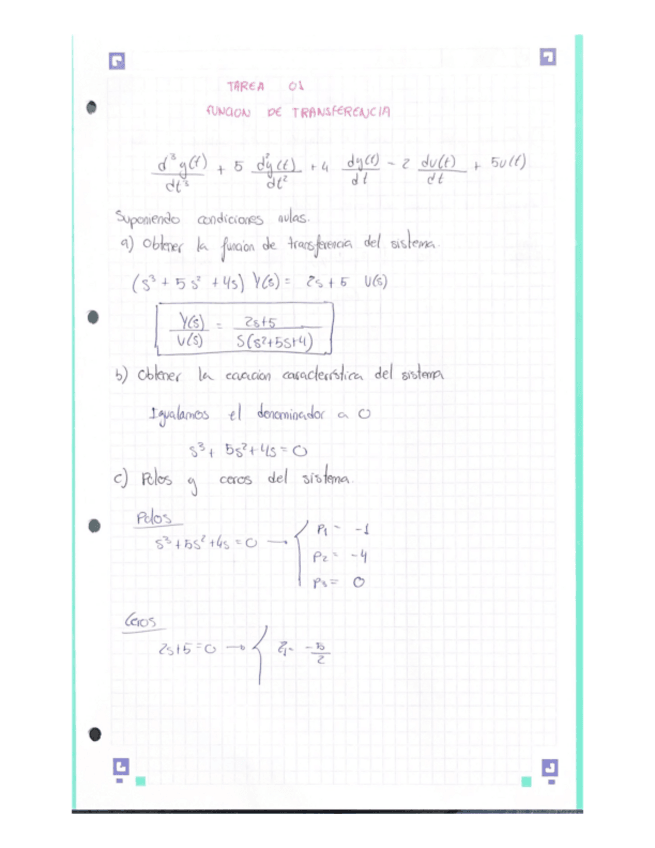 TAREA 01
FUNCION DE TRANSFERENCIA
d³y(t)/dt³ + 5 d²y(t)/dt² + 4 dy(t)/dt = 2 du(t)/dt + 5u(t)
Suponiendo condiciones nulas.
a) Obtener la funcion de transferencia del sistema.
(s³ + 5s² + 4s) Y(s) = 2s + 5 U(s)
Y(s)/U(s) = 2s+5/S(s²+5s+4)
b) Obtener la ecuacion característica del sistema
Igualamos el denominador a 0
s³ + 5s² + 4s = 0
c) Polos y ceros del sistema.
Polos
s³ + 5s² + 4s = 0 → { P₁ = -1
P₂ = -4
P₃ = 0
Ceros
2s+5 = 0 → { Z₁ = -5/2